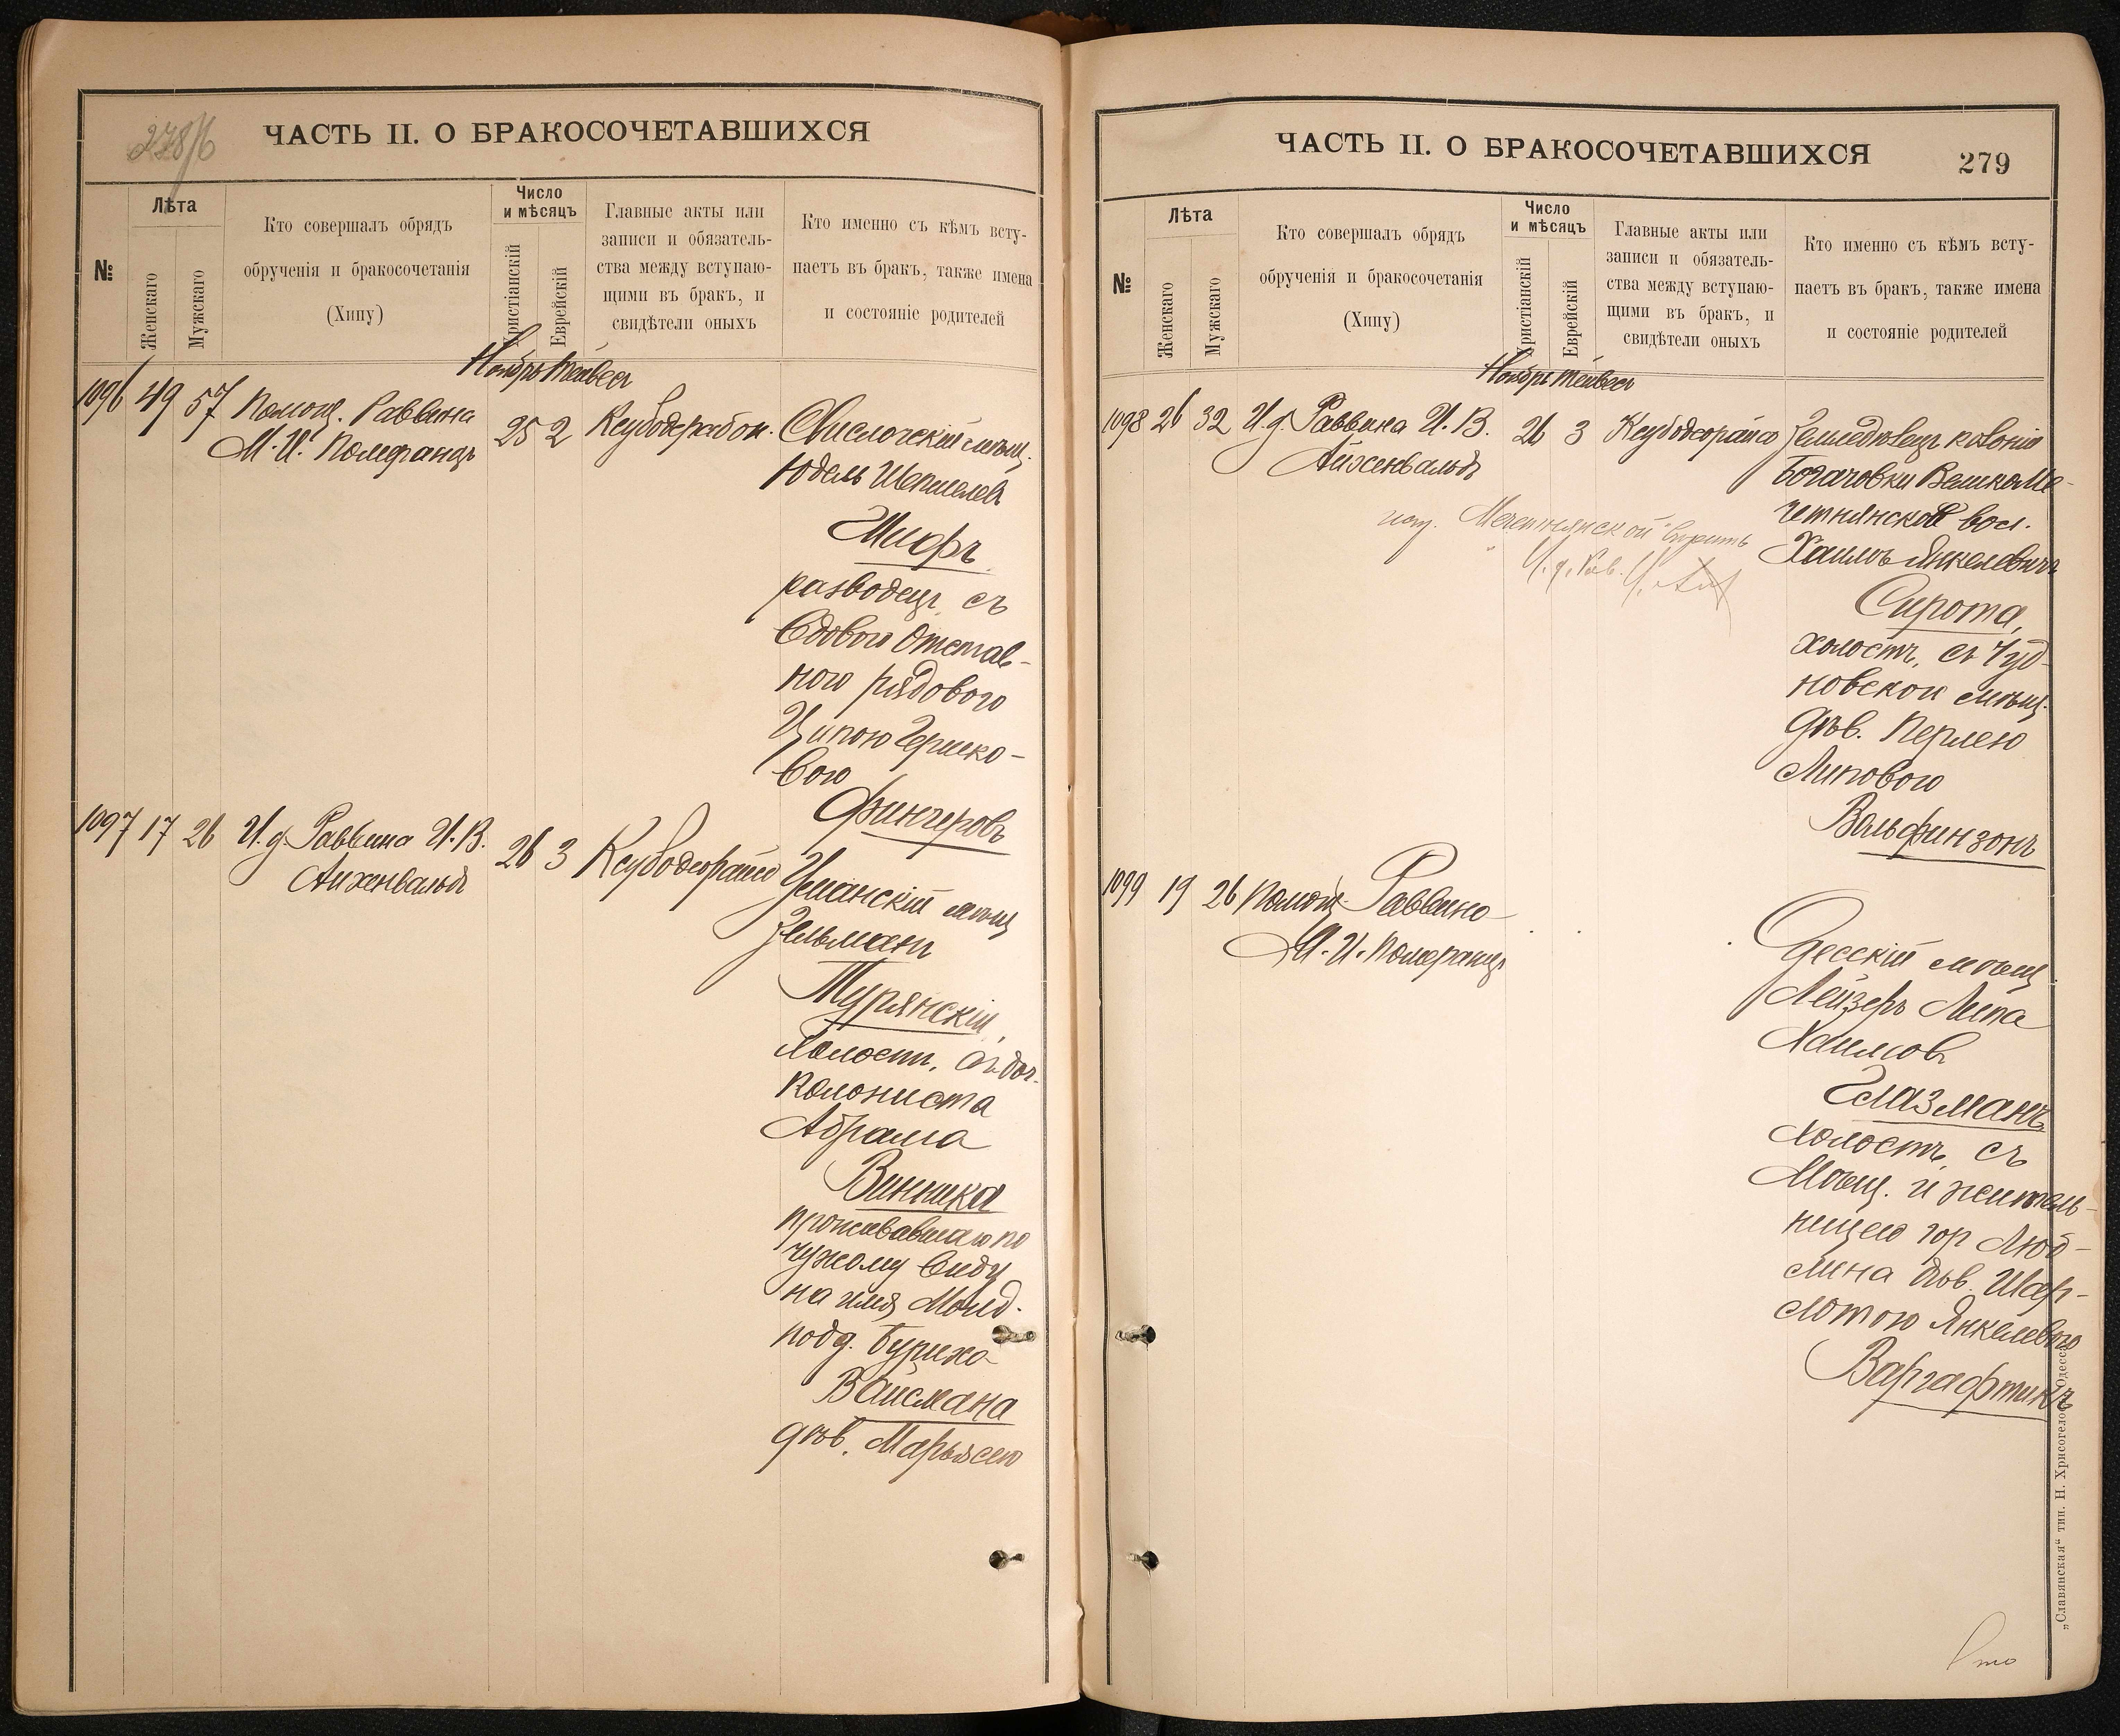 278/б
ЧАСТЬ II. О БРАКОСОЧЕТАВШИХСЯ
№
Лѣта
Женскаго
Мужскаго
Кто совершалъ обрядъ
обрученія и бракосочетанія
(Хипу)
Число
и мѣсяцъ
Христіанскій
Еврейскій
Главные акты или
записи и обязатель-
ства между вступаю-
щими въ бракъ, и
свидѣтели оныхъ
Кто именно съ кѣмъ всту-
паетъ въ бракъ, также имена
и состояніе родителей
Ноябрь Тейвесъ
1096 49 57 Помощ. Раввина
М. И. Померанцъ
25 2
Свислочскій мѣщ.
Юдель Шепшелев
Шифръ
разводец, съ
вдовою отстав-
ного рядового
Ципою Гершко-
вою
Фингеровъ
1097 17 26 И. д. Раввина И. В.
Айхенвальдъ
26 3 Ксубодеорайсо
Уманскій мѣщ
Зельманъ
Турянскій,
холост, съ доч.
колониста
Абрама
Винника
проживавшаго по
чужому виду
на имя Молд.
подд. Буриха
Вайсмана
дѣв. Марьясею
ЧАСТЬ II. О БРАКОСОЧЕТАВШИХСЯ
279
№
Лѣта
Женскаго
Мужскаго
Кто совершалъ обрядъ
обрученія и бракосочетанія
(Хипу)
Число
и мѣсяцъ
Христіанскій
Еврейскій
Главные акты или
записи и обязатель-
ства между вступаю-
щими въ бракъ, и
свидѣтели оныхъ
Кто именно съ кѣмъ всту-
паетъ въ бракъ, также имена
и состояніе родителей
Ноябрь Тейвесъ
1098 26 32 И. д. Раввина И. В.
Айхенвальдъ
26 3 Ксубодеорайсо
Земледѣлецъ колоніи
Богачовки Велико Ме-
четнянской вол.
Хаимъ Янкелевичъ
Сирота,
холостъ, съ Чуд-
новской мѣщ.
дѣв. Перлею
Липовою
Вольфинзонъ
Мечетнянской вѣрить
И. д. Рав.
1099 19 26 Помощ. Раввина
М. И. Померанцъ
Одесскій мѣщ.
Лейзеръ Липа
Хаимов
Глазманъ,
холостъ, съ
Мѣщ. и житель-
ницею гор Люб-
лина дѣв. Шар-
лотою Янкелевою
Варгафтикъ
„Славянская“ тип. Н. Хрисогелосъ, Одесса